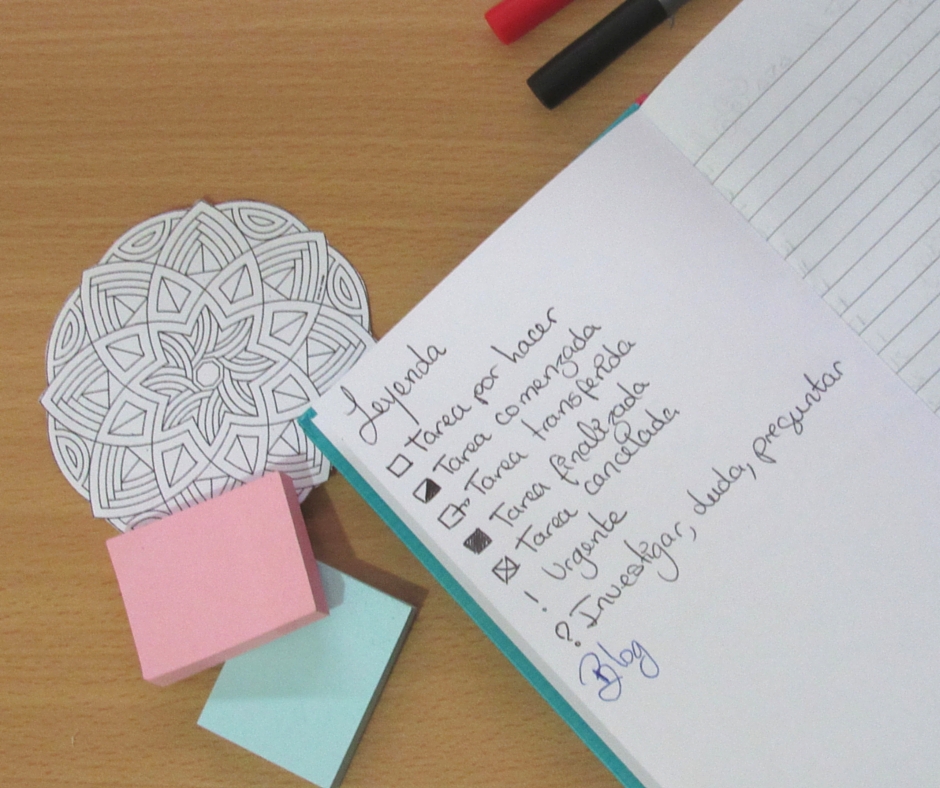 Leyenda
□ Tarea por hacer
◪ Tarea comenzada
Tarea transferida
■ Tarea finalizada
☒ Tarea cancelada
! Urgente
? Investigar, duda, preguntar
Blog